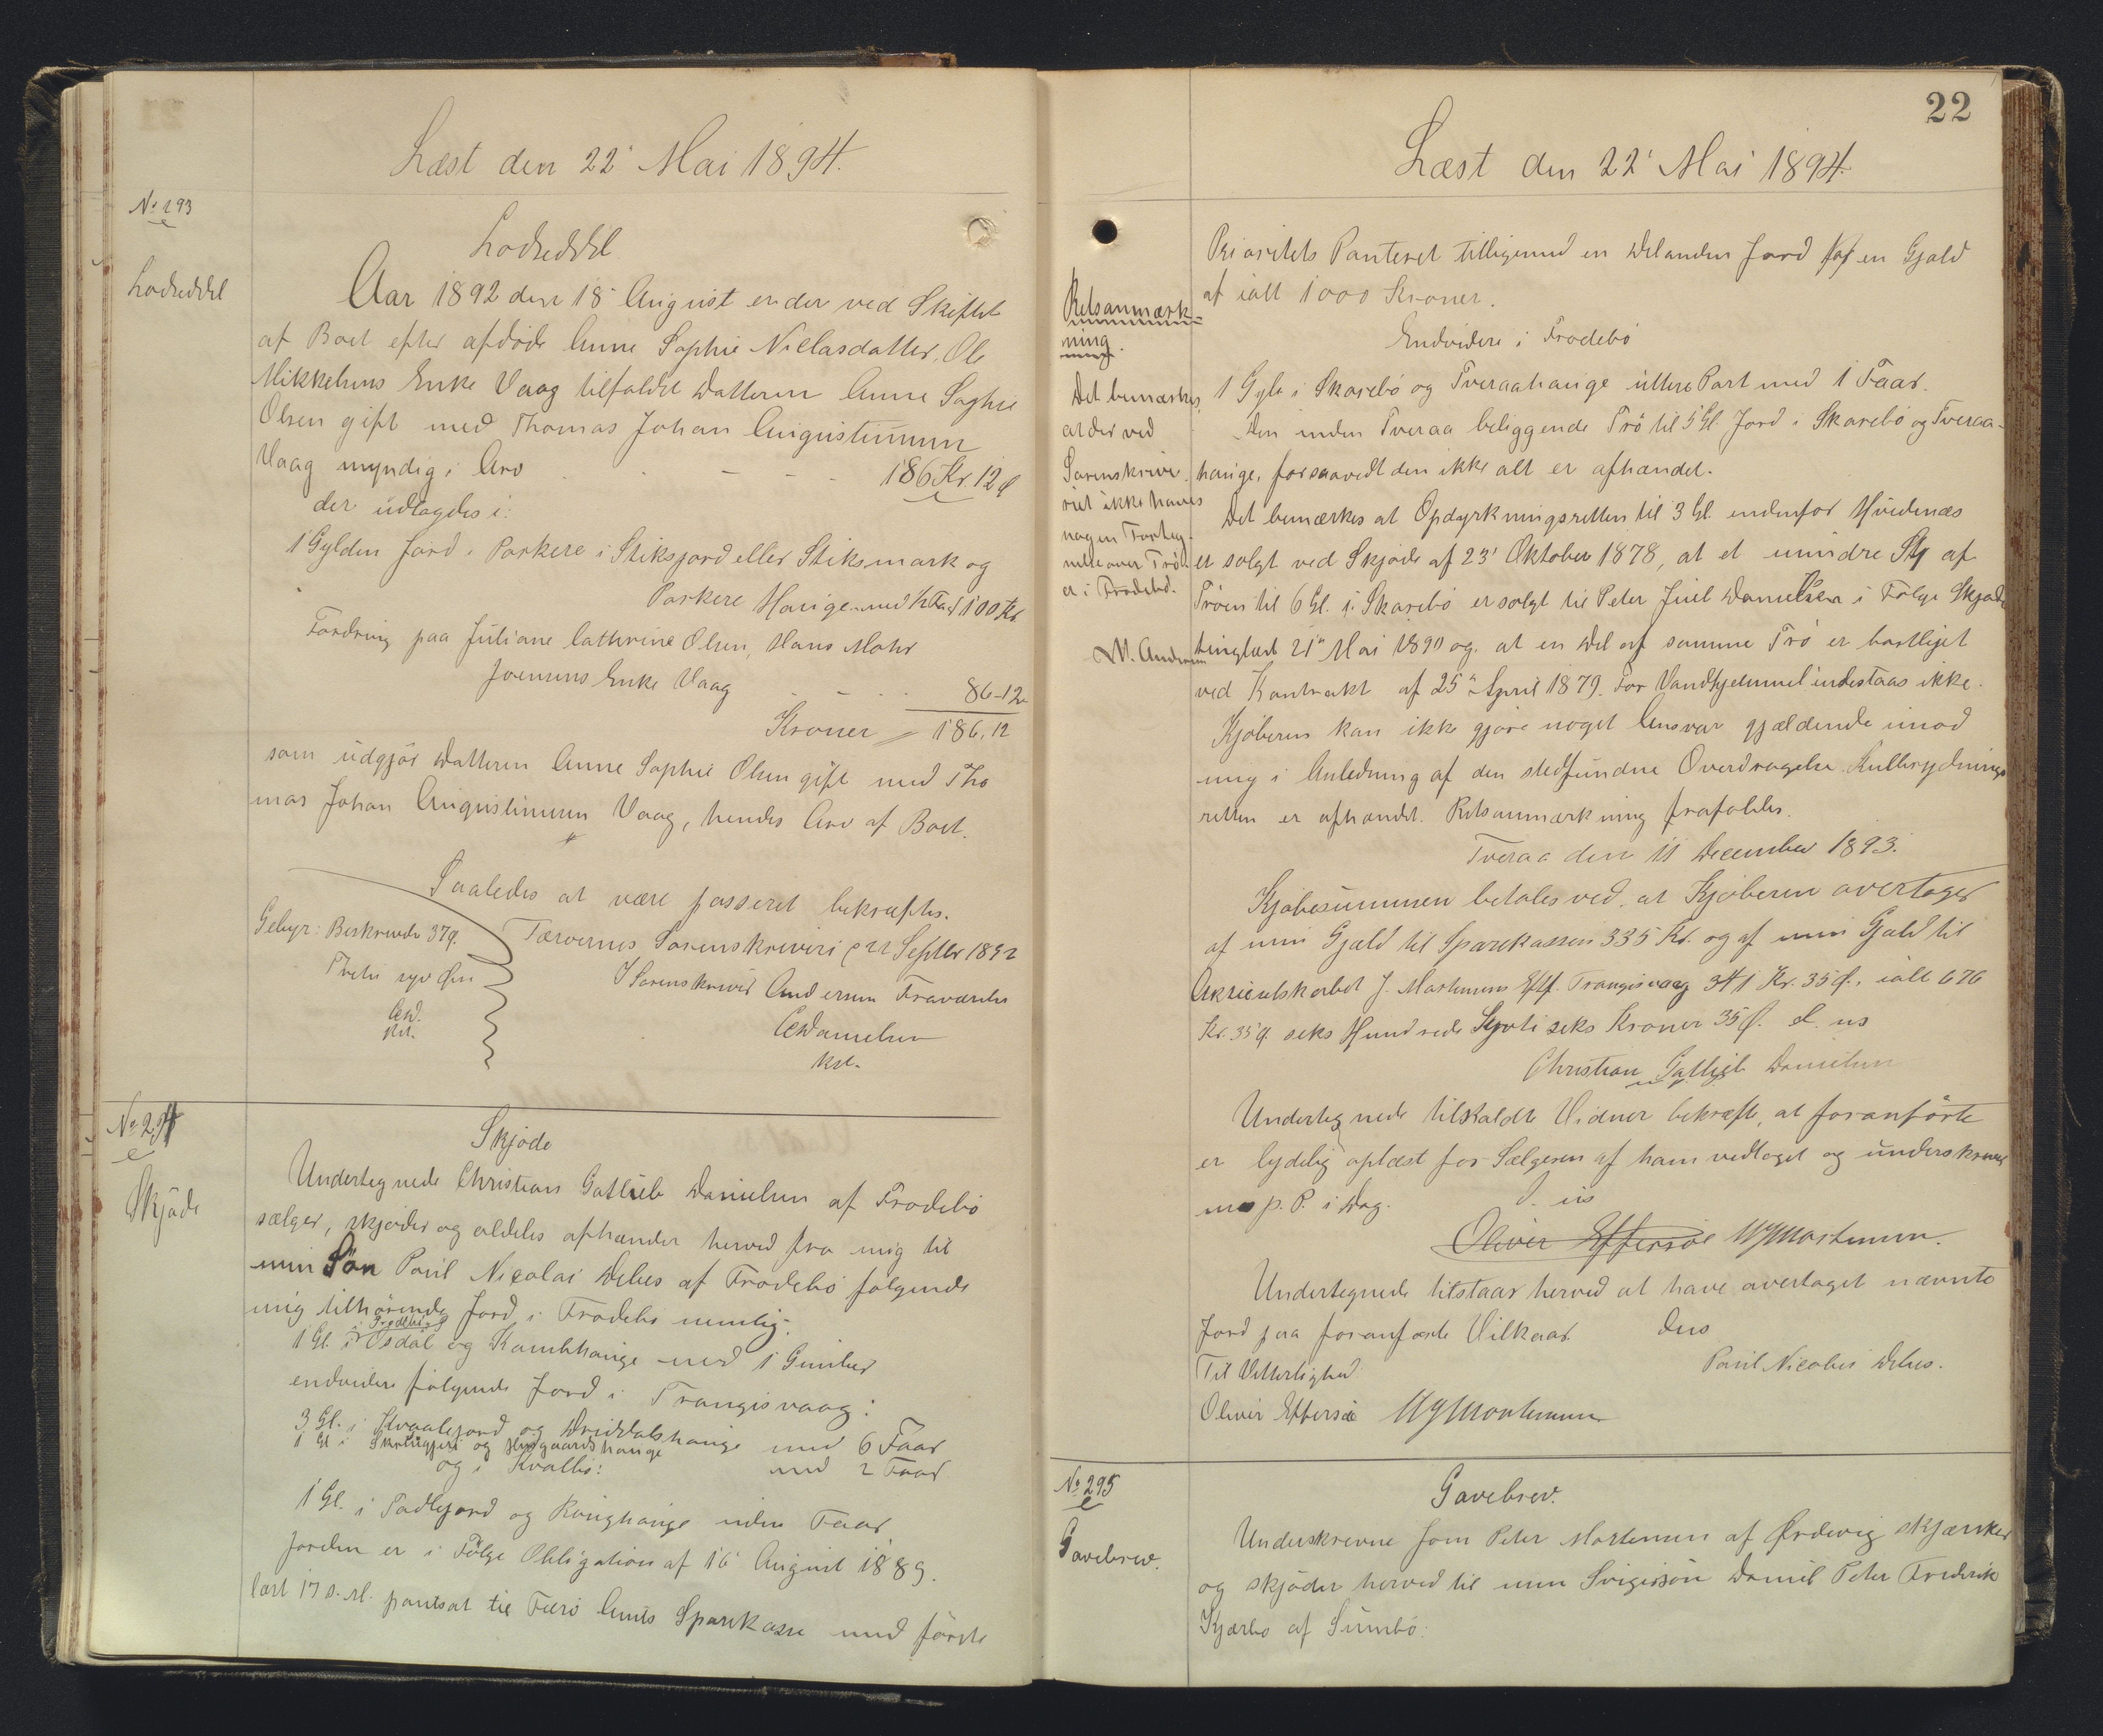 Læst den 22' Mai 1894.
No 293
Lodseddel
Lodseddel
Aar 1892 den 18' August er der ved Skiftet
af Boet efter afdøde Anne Sophie Niclasdatter, Ole
Mikkelsens Enke Vaag tilfaldet Datteren Anne Sophie
Olsen gift med Thomas Johan Augustinusen
Vaag myndig i Arv - - - 186 Kr. 12 Ø
der udlagdes i:
1 Gylden Jord i Porkere i Stiksjord eller Stiksmark og
Porkere Hauge med ½ Faar 100 Kr
Fordring paa Juliane Cathrine Olsen, Hans Mohr
Joensens Enke Vaag - - - 86-12
Kroner 186,12
som udgjør Datteren Anne Sophie Olsen gift med Tho
mas Johan Augustinusen Vaag, hendes Arv af Boet.
Saaledes at være passeret bekræftes.
Gebyr: Beskrevde 37Ø.
Færøernes Sorenskriveri 22 Septbr 1892
Treti syv Øre
I Sorenskriver Andersens Fraværelse
CDanielsen
Kst.
No 294
Skjøde
Skjøde
Undertegnede Christian Gatlieb Danielsen af Frodebø
sælger, skjøder og aldeles afhænder herved fra mig til
min Søn Poul Nicolai Debes af Frodebø følgende
mig tilhørende Jord i Frodebø nemlig:
i Frodebø
1 Gl. i Øsdal og Kambhauge med 1 Gimber
endvidere følgende Jord i Trangisvaag:
3 Gl. i Hvaalejord og Dviddalshauge med 6 Faar
1 Gl i Skrlugjeri og Husgaardshauge
og i Kvalbø: med 2 Faar
1 Gl. i Fadlejord og Ranghauge uden Faar.
Jorden er i Følge Obligation af 16' August 1889.
læst 17 s. M. pantsat til Færø Amts Sparekasse med første
22
Læst den 22' Mai 1894.
Prioritets Panteret tilligemed en Del anden Jord for en Gjæld
af ialt 1000 Kroner.
Retsanmærk-
ning.
Det bemærkes,
at der ved
Sorenskrive-
riet ikke haves
nogen Forteg-
nelse over Trø-
er i Frodebø.
N. Andersen
Endvidere i Frodebø
1 Gyl. i Skarebø og Tveraahauge ittere Part med 1 Faar.
Den inden Tveraa beliggende Trø til 5 Gl. Jord i Skarebø og Tveraa-
hauge, forsaavidt den ikke alt er afhændet.
Det bemærkes at Opdyrkningsretten til 3 Gl. endenfor Hvidenæs
er solgt ved Skjøde af 23' Oktober 1878, at et mindre Stk af
Trøen til 6 Gl. i Skarebø er solgt til Peter Juel Danielsen i Følge Skjøde
tinglæst 21' Mai 1890 og at en Del af samme Trø er bortlejet
ved Kontrakt af 25' April 1879. For Vandhjemmel indestaas ikke.
Kjøberen kan ikke gjøre noget Ansvar gjældende imod
mig i Anledning af den stedfundne Overdragelse. Kulbrydnings
retten er afhændet. Retsanmærkning frafaldes.
Tveraa den 11 December 1893.
Kjøbesummen betales ved, at Kjøberen overtager
af min Gjæld til Sparekassen 335 Kr. og af min Gjæld til
Aktieselskabet J. Mortensens Eftf. Trangisvaag 341 Kr. 35 Ø., ialt 676
Kr. 35 Ø. seks Hundrede Syvti seks Kroner 35 Ø. d. us
Christian Gatlieb Danielsen
Undertegnede tilkaldte Vidner bekræfte, at foranførte
er lydelig oplæst for Sælgeren af ham vedtaget og underskrevet
m. p. P. i Dag.
D. us
Oliver Effersøe MJMortensen.
Undertegnede tilstaar herved at have overtaget nævnte
Jord paa foranførte Vilkaar Dus
Til Vitterlighed
Poul Nicolai Debes.
Oliver Effersøe MJMortensen
No 295
Gavebrev.
Gavebrev.
Underskrevne Joen Peter Mortensen af Ørdevig skjænker
og skjøder herved til min Svigersøn Daniel Peter Frederik
Kjærbo af Sumbø: